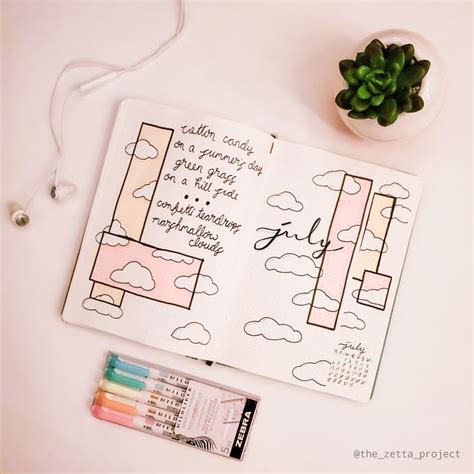 cotton candy
on a summer's day
green grass
on a hill side
...
confetti teardrops
marshmallow
clouds
july
july
MILD
MILD
ZEBRA
@the_zetta_project